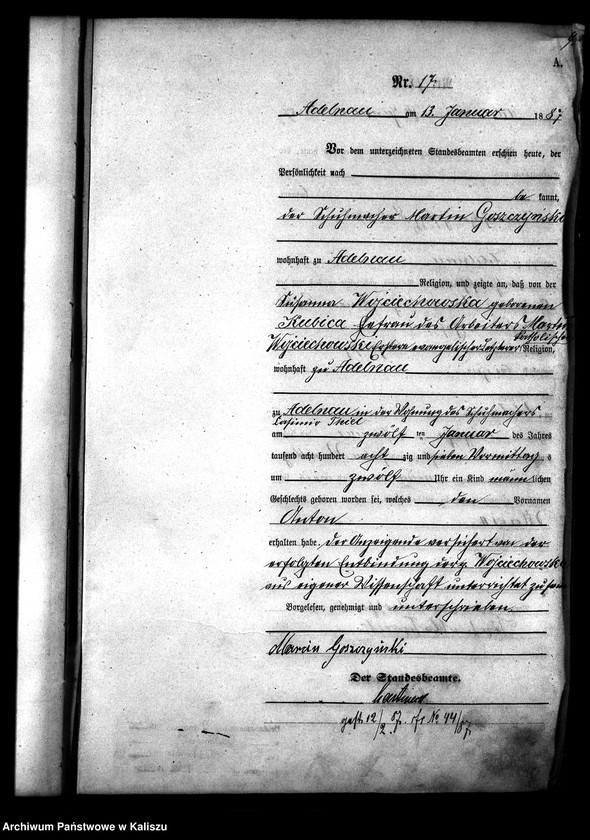 A.
Nr. 17
Adelnau am 13. Januar 1887
Vor dem unterzeichneten Standesbeamten erschien heute, der
Persönlichkeit nach
be kannt,
der Schuhmacher Martin Goszczyński
wohnhaft zu Adelnau
Religion, und zeigte an, daß von der
Susanna Wojciechowska geborenen
Kubica Ehefrau des Arbeiters Martin
Wojciechowski Erstere evangelischer Letzterer katholischer Religion,
wohnhaft zu Adelnau
zu Adelnau in der Wohnung des Schuhmachers
Casimir Thiel
am zwölf ten Januar des Jahres
tausend acht hundert acht zig und sieben Vormittag s
um zwölf Uhr ein Kind männ lichen
Geschlechts geboren worden sei, welches den Vornamen
Anton
erhalten habe. der Anzeigende versichert von der
erfolgten Entbindung der p. Wojciechowska
aus eigener Wissenschaft unterrichtet zu sein
Vorgelesen, genehmigt und unterschrieben.
Marcin Goszczyński
Der Standesbeamte.
No 44/87
Archiwum Państwowe w Kaliszu